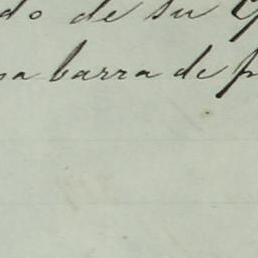 do de su
barra de